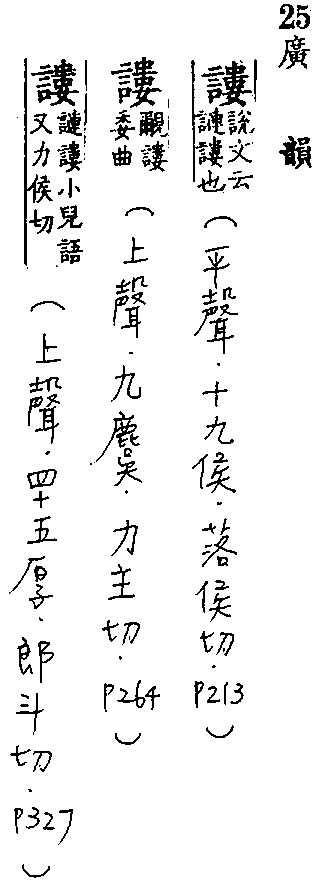 25廣韻
謱說文云謰謱也(平聲.十九侯.落侯切.P213)
謱覶謱委曲(上聲.九麌.力主切.P264)
謱謰謱小兒語又力侯切(上聲.四十五厚.郎斗切.P327)